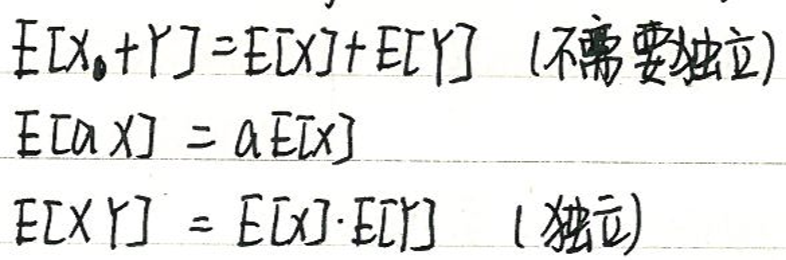 E[X+Y]=E[X]+E[Y] (不需要独立)
E[aX] = aE[X]
E[XY] = E[X]·E[Y] (独立)